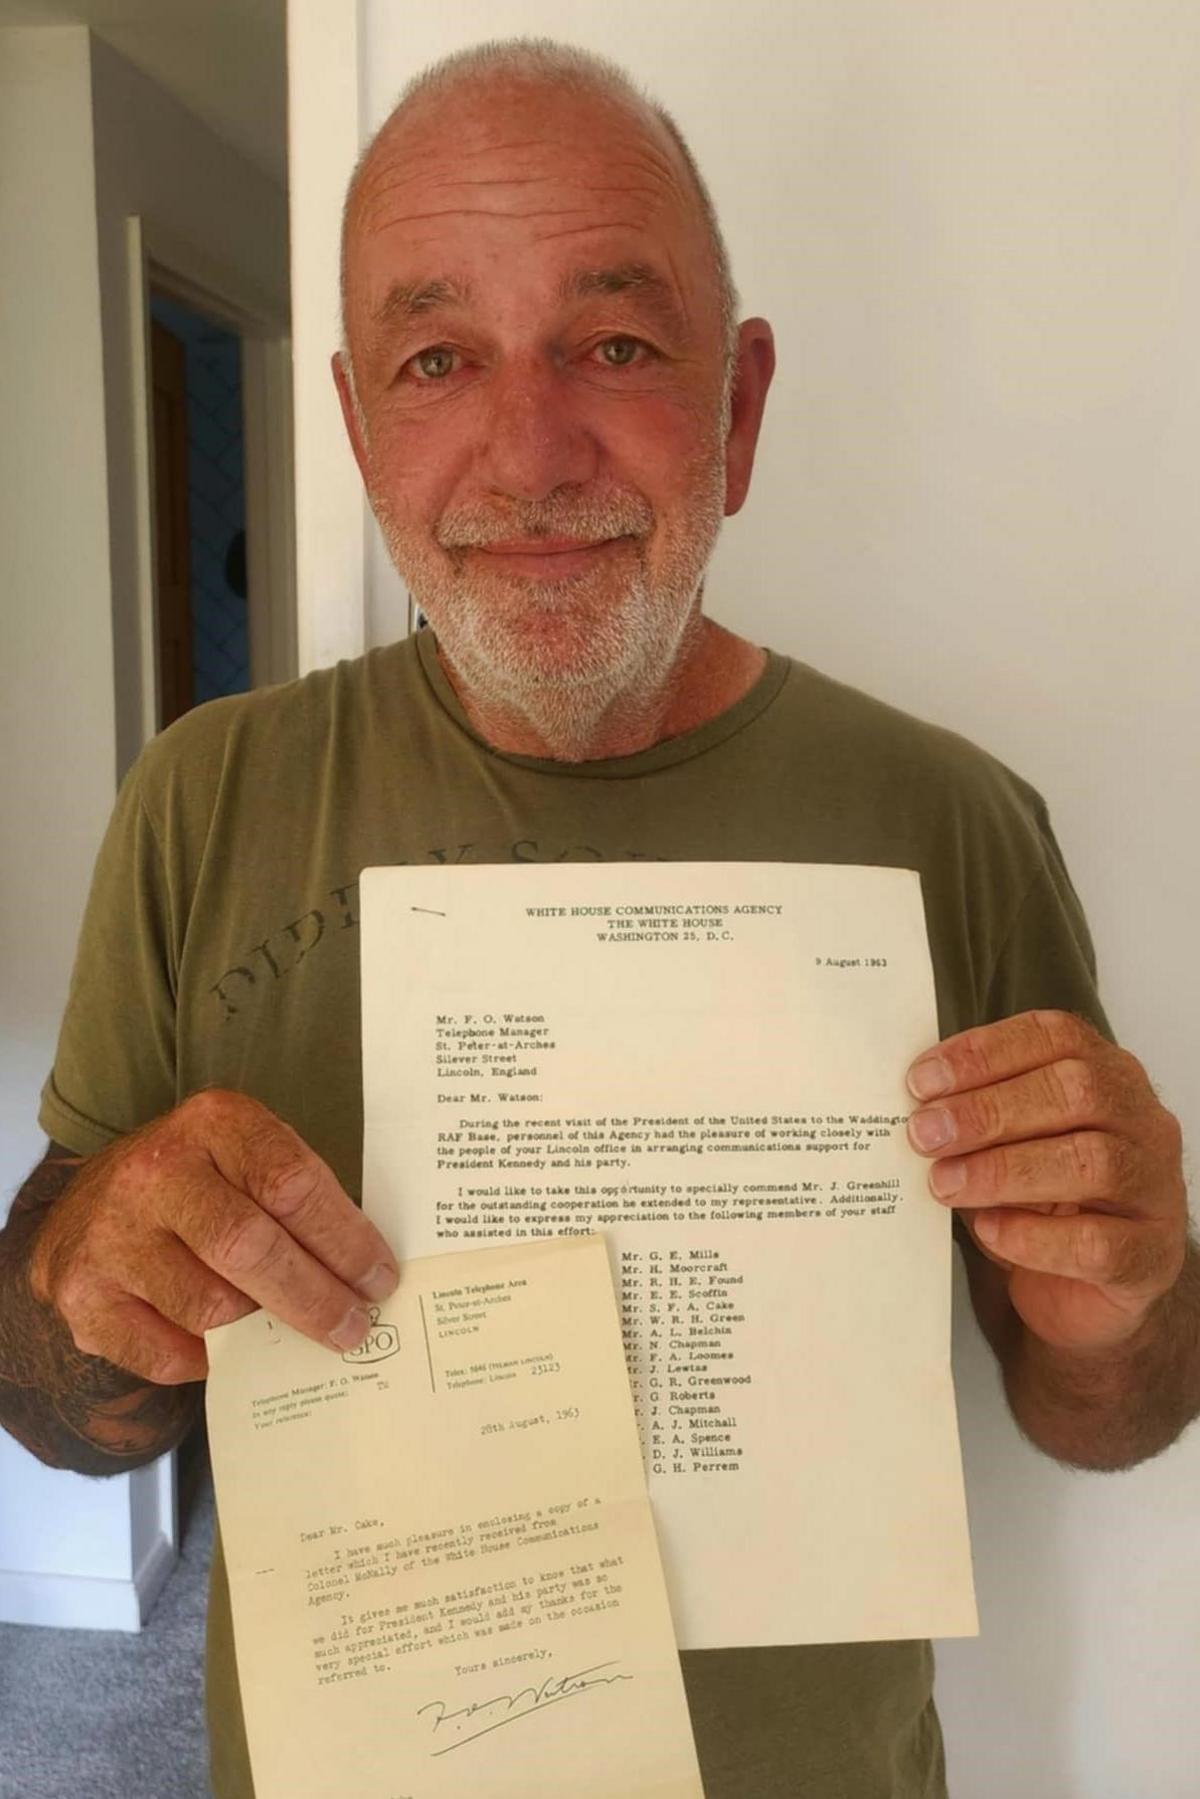 WHITE HOUSE COMMUNICATIONS AGENCY
THE WHITE HOUSE
WASHINGTON 25, D.C.
9 August 1963
Mr. F. O. Watson
Telephone Manager
St. Peter-at-Arches
Silever Street
Lincoln, England
Dear Mr. Watson:
During the recent visit of the President of the United States to the Waddingto
RAF Base, personnel of this Agency had the pleasure of working closely with
the people of your Lincoln office in arranging communications support for
President Kennedy and his party.
I would like to take this opportunity to specially commend Mr. J. Greenhill
for the outstanding cooperation he extended to my representative. Additionally,
I would like to express my appreciation to the following members of your staff
who assisted in this effort:
Mr. G. E. Mills
Mr. H. Moorcraft
Mr. R. H. E. Found
Mr. E. E. Scoffin
Mr. S. F. A. Cake
Mr. W. R. H. Green
Mr. A. L. Belchin
Mr. N. Chapman
Mr. F. A. Loomes
Mr. J. Lewtas
r. G. R. Greenwood
r. G. Roberts
r. J. Chapman
. A. J. Mitchall
. E. A. Spence
. D. J. Williams
G. H. Perrem
GPO
Lincoln Telephone Area
St. Peter-at-Arches
Silver Street
LINCOLN
Telex: 5646 (TELMAN LINCOLN)
Telephone: Lincoln 23123
Telephone Manager: F. O. Watson
In any reply please quote:
Your reference:
20th August, 1963
Dear Mr. Cake,
I have much pleasure in enclosing a copy of a
letter which I have recently received from
Colonel McNally of the White House Communications
Agency.
It gives me much satisfaction to know that what
we did for President Kennedy and his party was so
much appreciated, and I would add my thanks for the
very special effort which was made on the occasion
referred to.
Yours sincerely,
F. O. Watson